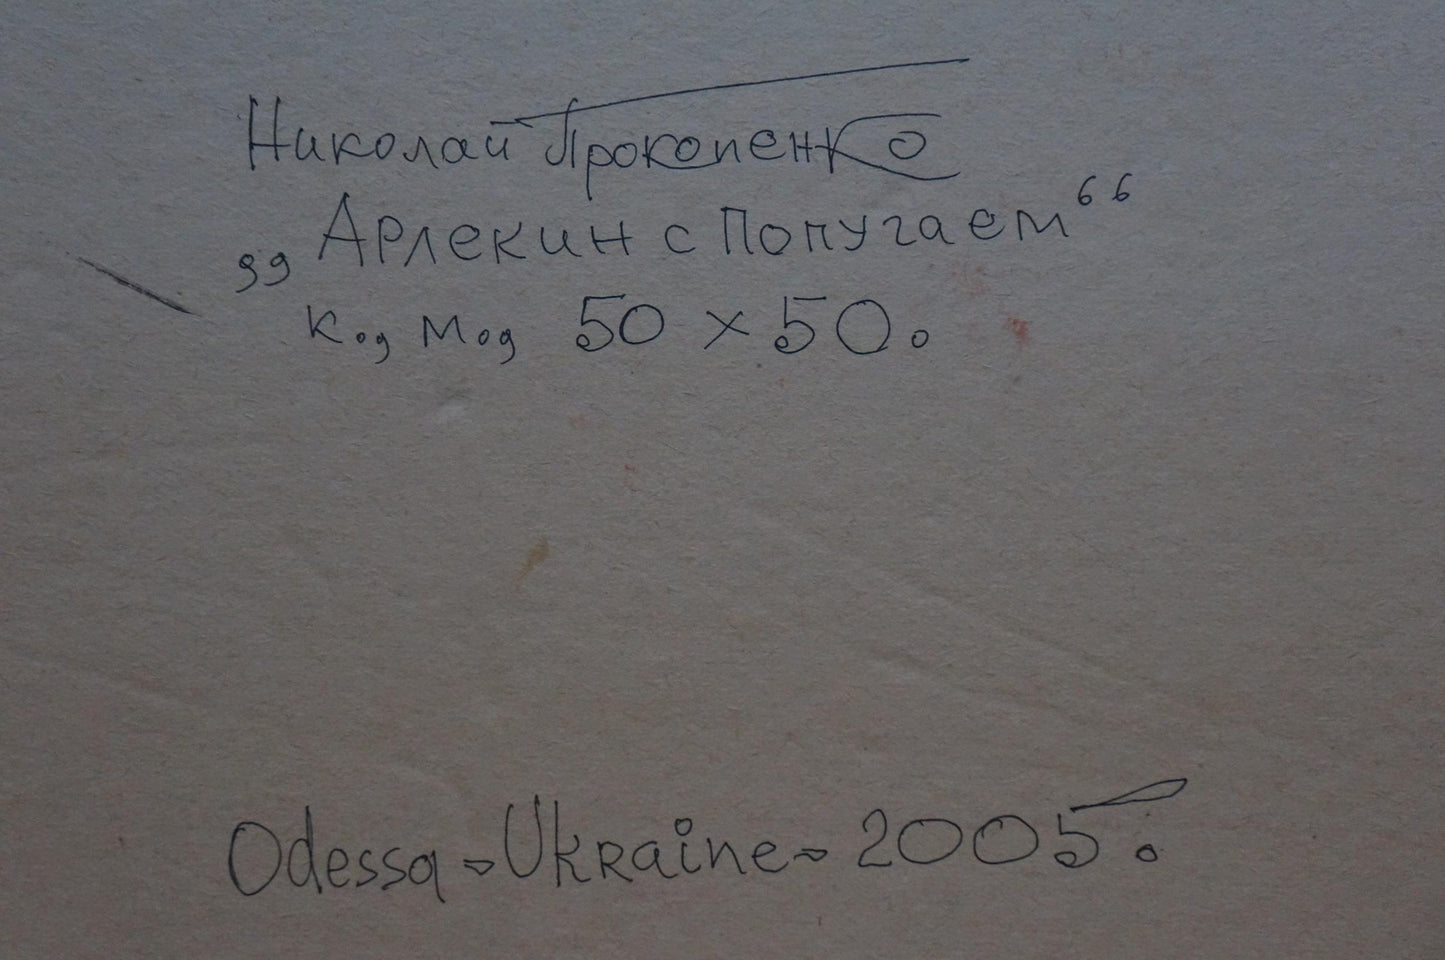 Николай Прокопенко
„Арлекин с Попугаем“
К., М., 50 x 50.
Odessa - Ukraine - 2005.